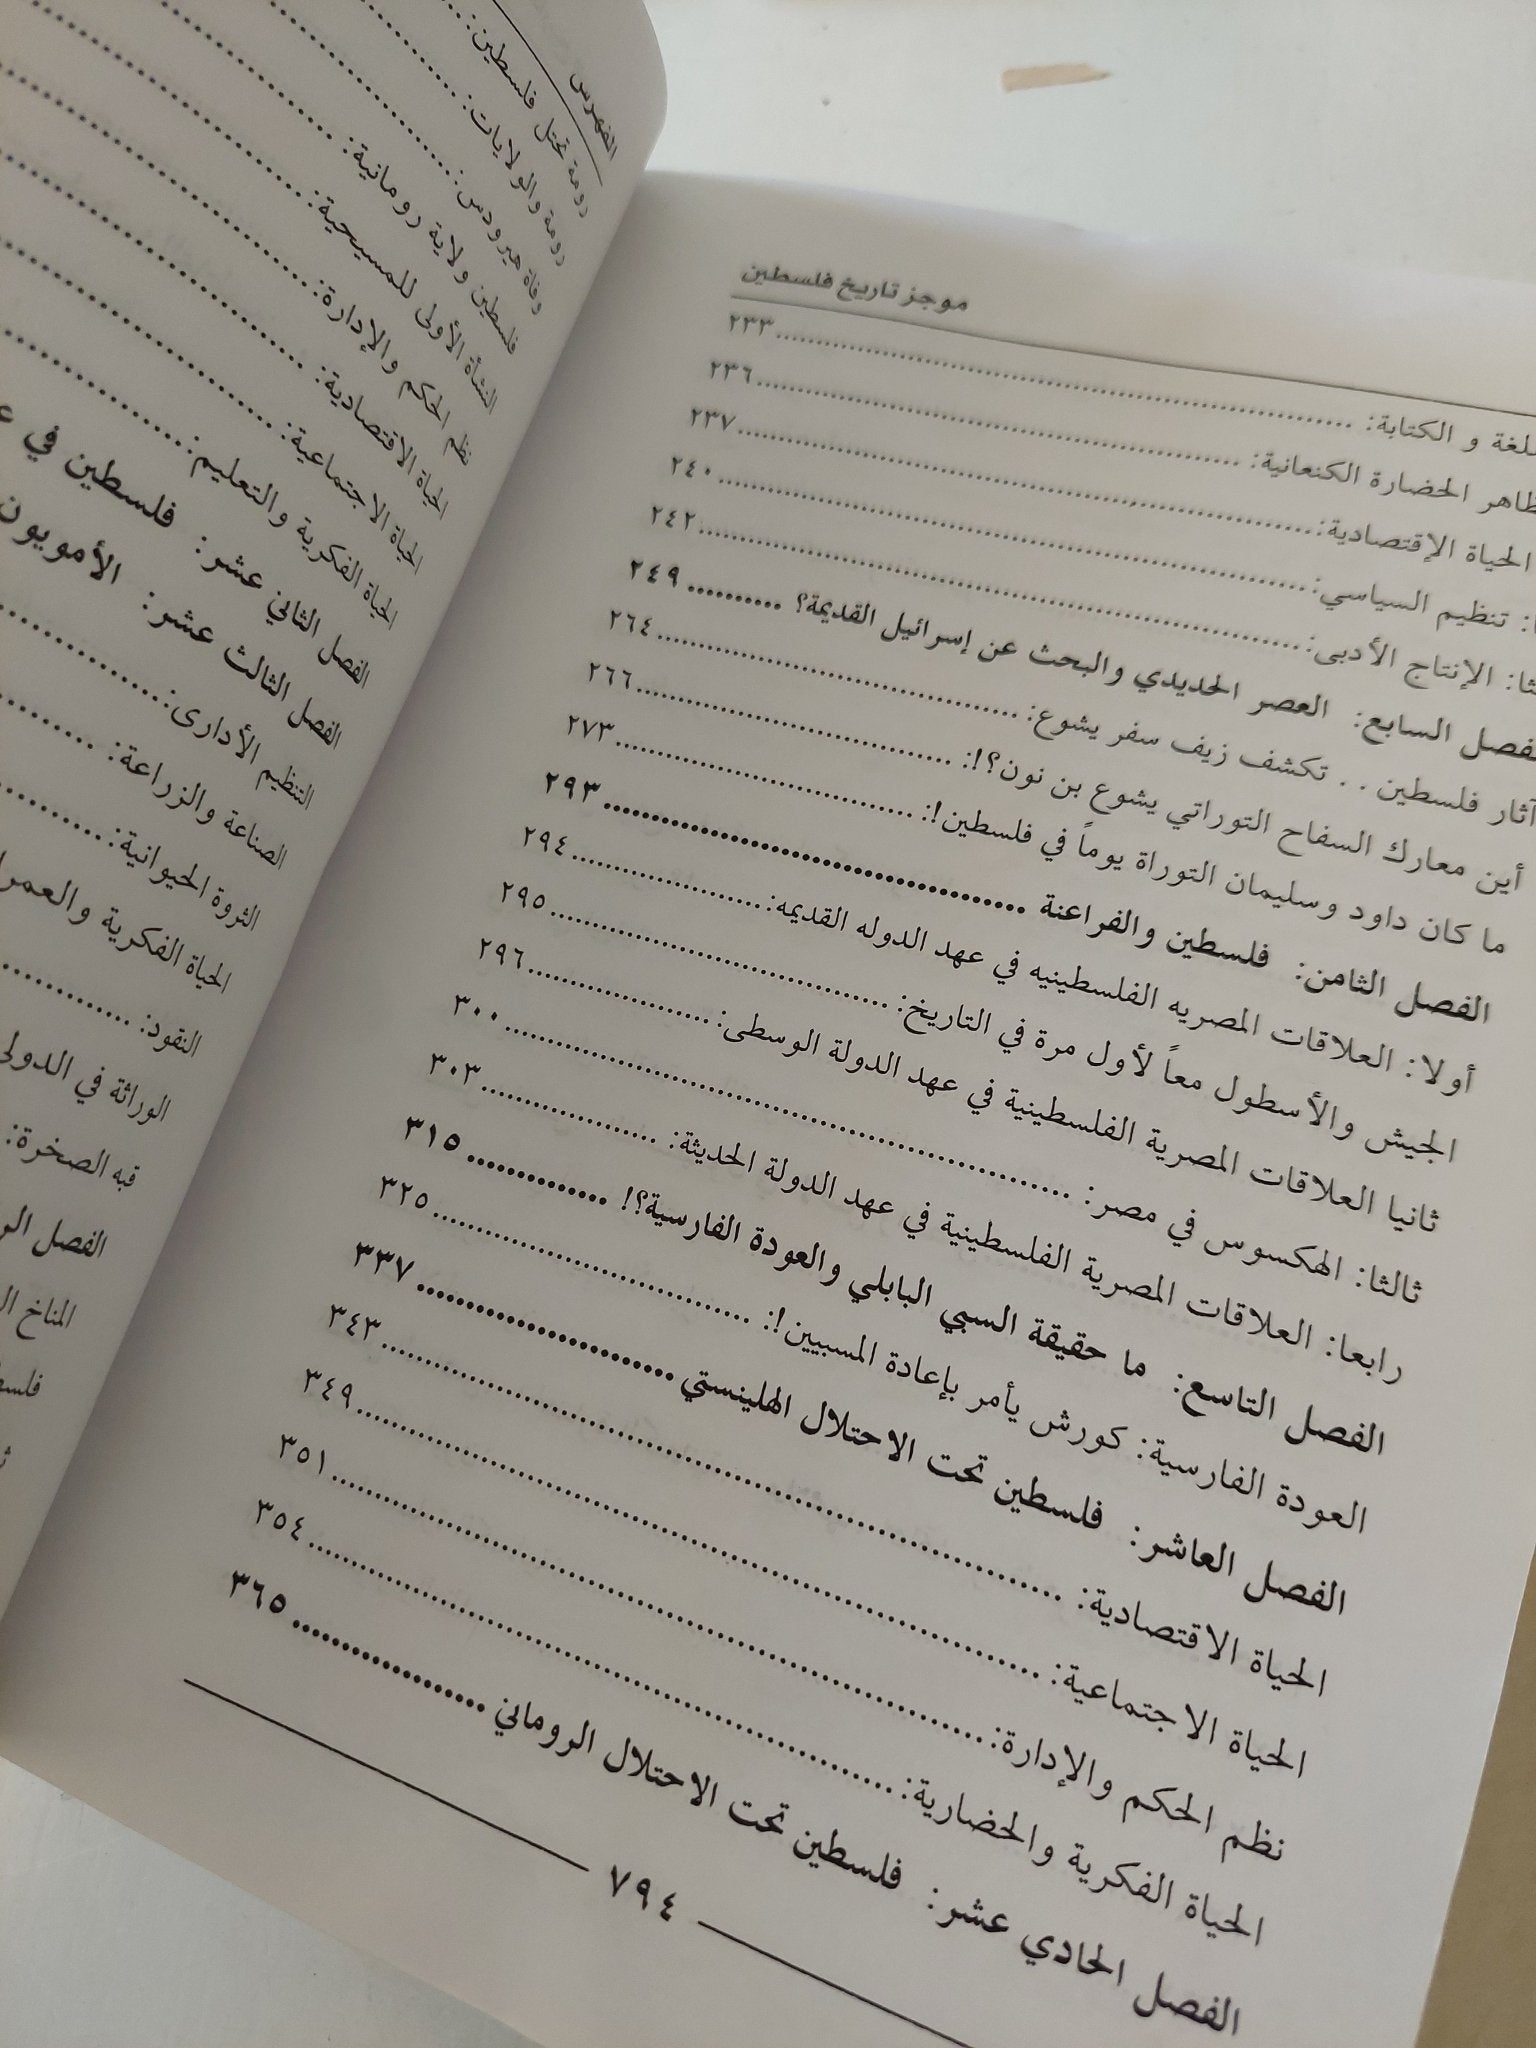 موجز تاريخ فلسطين
للغة و الكتابة: ٢٣٣
ظاهر الحضارة الكنعانية: ٢٣٦
الحياة الإقتصادية: ٢٣٧
تنظيم السياسي: ٢٤٠
الإنتاج الأدبى: ٢٤٢
فصل السابع: العصر الحديدي والبحث عن إسرائيل القديمة؟ ٢٤٩
آثار فلسطين . . تكشف زيف سفر يشوع: ٢٦٤
أين معارك السفاح التوراتي يشوع بن نون؟!: ٢٦٦
ما كان داود وسليمان التوراة يوماً في فلسطين!: ٢٧٣
الفصل الثامن: فلسطين والفراعنة ٢٩٣
أولا: العلاقات المصريه الفلسطينيه في عهد الدوله القديمه: ٢٩٤
الجيش والأسطول معاً لأول مرة في التاريخ: ٢٩٥
ثانيا العلاقات المصرية الفلسطينية في عهد الدولة الوسطى: ٢٩٦
ثالثا: الهكسوس في مصر: ٣٠٠
رابعا: العلاقات المصرية الفلسطينية في عهد الدولة الحديثة: ٣٠٣
الفصل التاسع: ما حقيقة السبي البابلي والعودة الفارسية؟! ٣١٥
العودة الفارسية: كورش يأمر بإعادة المسبيين!: ٣٢٥
الفصل العاشر: فلسطين تحت الاحتلال الهلينستي ٣٣٧
الحياة الاقتصادية: ٣٤٣
الحياة الاجتماعية: ٣٤٩
نظم الحكم والإدارة: ٣٥١
الحياة الفكرية والحضارية: ٣٥٤
الفصل الحادي عشر: فلسطين تحت الاحتلال الروماني ٣٦٥
٧٩٤
الفهرس
رومة تحتل فلسطين:
رومة والولايات:
وفاة هيرودس:
فلسطين ولاية رومانية:
النشأة الأولى للمسيحية:
نظم الحكم والإدارة:
الحياة الاقتصادية:
الحياة الاجتماعية:
الحياة الفكرية والتعليم:
الفصل الثاني عشر: فلسطين في
الفصل الثالث عشر: الأمويون
التنظيم الأدارى:
الصناعة والزراعة:
الثروة الحيوانية:
الحياة الفكرية والعمر
النقود:
الوراثة في
قبه الصخرة:
الفصل
المناخ